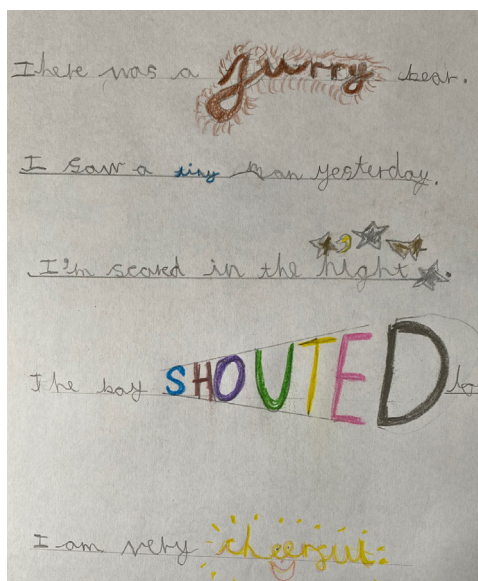 There was a furry bear.
I saw a tiny man yesterday.
I'm scared in the night.
The boy SHOUTED
I am very cheerful.